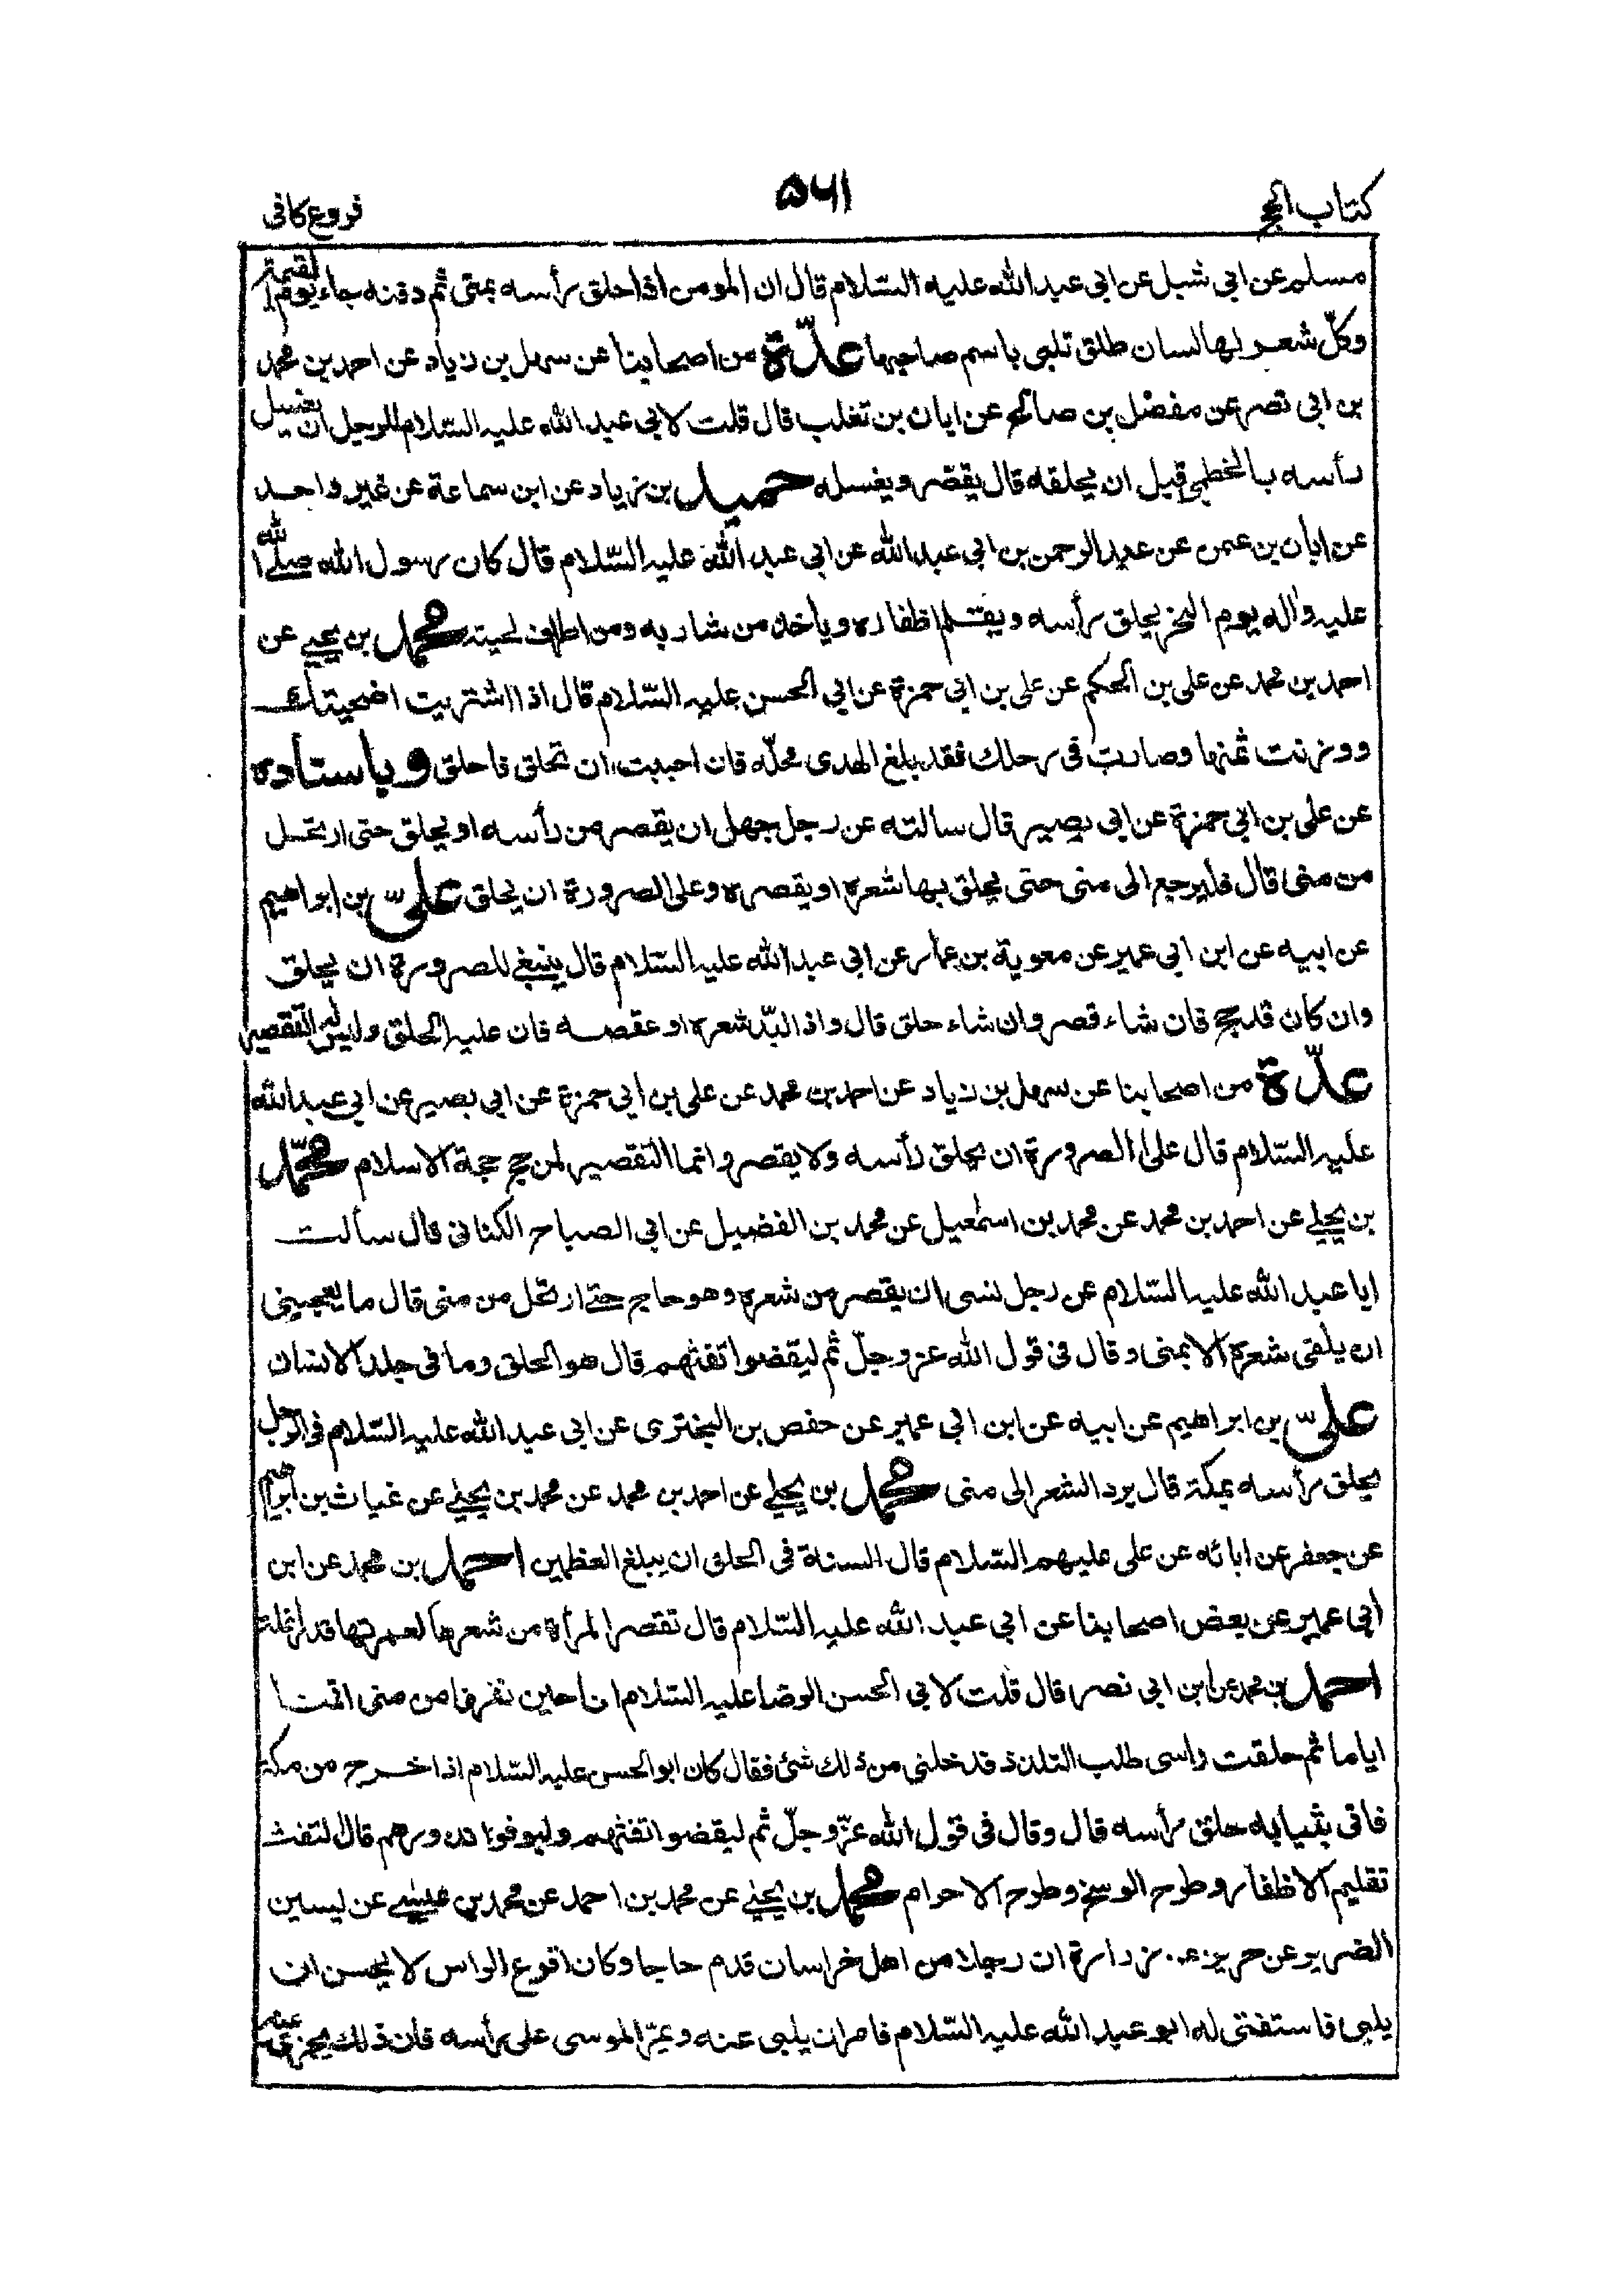 كتاب الحج
۵۶۱
فروع كافى
مسلم عن ابى شبل عن ابى عبد الله عليه السّلام قال ان المومن اذا حلق رأسه بمنى ثم دفنه جاء يوم القيمة
وكلّ شعر لها لسان طلق تلبى باسم صاحبها عدّة من اصحابنا عن سهل بن زياد عن احمد بن محمد
بن ابى نصر عن مفضل بن صالح عن ابان بن تغلب قال قلت لابى عبد الله عليه السّلام للرجل ان يغسل
رأسه بالخطمى قبل ان يحلقه قال يقصّر ويغسله حميد بن زياد عن ابن سماعة عن غير واحد
عن ابان بن عثمن عن عبد الرحمن بن ابى عبد الله عن ابى عبد الله عليه السّلام قال كان رسول الله صلى الله
عليه واله يوم النحر يحلق رأسه ويقلم اظفاره وياخذ من شاربه ومن اطراف لحيته محمد بن يحيى عن
احمد بن محمد عن على بن الحكم عن على بن ابى حمزة عن ابى الحسن عليه السّلام قال اذا اشتريت اضحيتك
ووزنت ثمنها وصارت فى رحلك فقد بلغ الهدى محلّه فان احببت ان تحلق فاحلق وباسناده
عن على بن ابى حمزة عن ابى بصير قال سالته عن رجل جهل ان يقصر من رأسه او يحلق حتى ارتحل
من منى قال فليرجع الى منى حتى يحلق بها شعره او يقصره وعلى الصرورة ان يحلق علىّ بن ابراهيم
عن ابيه عن ابن ابى عمير عن معوية بن عمار عن ابى عبد الله عليه السّلام قال ينبغى للصرورة ان يحلق
وان كان قد حج فان شاء قصر وان شاء حلق قال واذا لبّد شعره او عقصه فان عليه الحلق وليس له التقصير
عدّة من اصحابنا عن سهل بن زياد عن احمد بن محمد عن على بن ابى حمزة عن ابى بصير عن ابى عبد الله
عليه السّلام قال على الصرورة ان يحلق رأسه ولا يقصر وانما التقصير لمن حج حجة الاسلام محمّد
بن يحيى عن احمد بن محمد عن محمد بن اسمعيل عن محمد بن الفضيل عن ابى الصباح الكنانى قال سألت
ابا عبد الله عليه السّلام عن رجل نسى ان يقصر من شعره وهو حاج حتى ارتحل من منى قال ما يعجبنى
ان يلقى شعره الا بمنى وقال فى قول الله عز وجلّ ثم ليقضوا تفثهم قال هو الحلق وما فى جلد الانسان
علىّ بن ابراهيم عن ابيه عن ابن ابى عمير عن حفص بن البخترى عن ابى عبد الله عليه السّلام فى الرجل
يحلق رأسه بمكة قال يرد الشعر الى منى محمد بن يحيى عن احمد بن محمد عن محمد بن يحيى عن غياث بن ابراهيم
عن جعفر عن ابائه عن على عليهم السّلام قال السنة فى الحلق ان يبلغ العظمين احمد بن محمد عن ابن
ابى عمير عن بعض اصحابنا عن ابى عبد الله عليه السّلام قال تقصر المرأة من شعرها لعمرتها قدر انملة
احمد بن محمد عن ابن ابى نصر قال قلت لابى الحسن الرضا عليه السّلام انا حين نفرنا من منى اقمنا
اياما ثم حلقت راسى طلب التلذذ فدخلنى من ذلك شئ فقال كان ابو الحسن عليه السّلام اذا خرج من مكة
فاتى بثيابه حلق رأسه قال وقال فى قول الله عزّ وجلّ ثم ليقضوا تفثهم وليوفوا نذورهم قال التفث
تقليم الاظفار وطرح الوسخ وطرح الاحرام محمد بن يحيى عن محمد بن احمد عن محمد بن عيسى عن ليسين
الضرير عن حريز عن زرارة ان رجلا من اهل خراسان قدم حاجا وكان اقرع الراس لا يحسن ان
يلبى فاستفتى له ابو عبد الله عليه السّلام فامر ان يلبى عنه ويمرّ الموسى على رأسه فان ذلك يجزى عنه